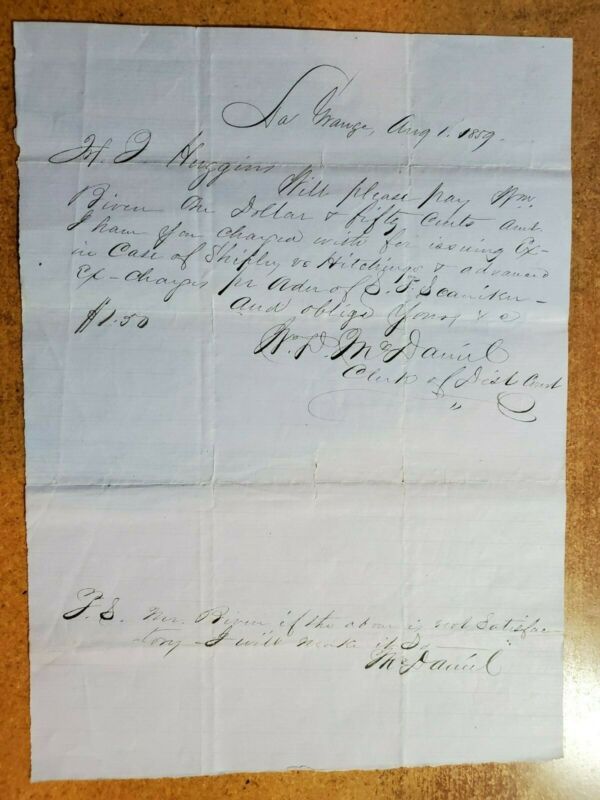 La Grange, Aug 1. 1859.
H. J Huggins
Will please pay Wm.
Biven One Dollar & fifty Cents Amt
I have you charged with for issuing Ex-
in Case of Shipley vs Hitchings & advanced
Ex-charges pr Ader of S. S.
and oblige Yours & c
$1.50
W. P. McDaniel
Clerk of Dist Court
P. S. Mr. Biven if the above is not Satisfac
tory - I will make it So
McDaniel